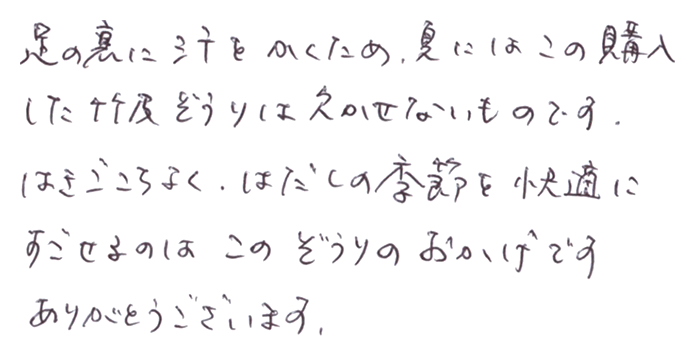 足の裏に汗をかくため、夏にはこの購入
した竹皮ぞうりは欠かせないものです。
はきごころよく、はだしの季節を快適に
すごせるのは このぞうりのおかげです
ありがとうございます。